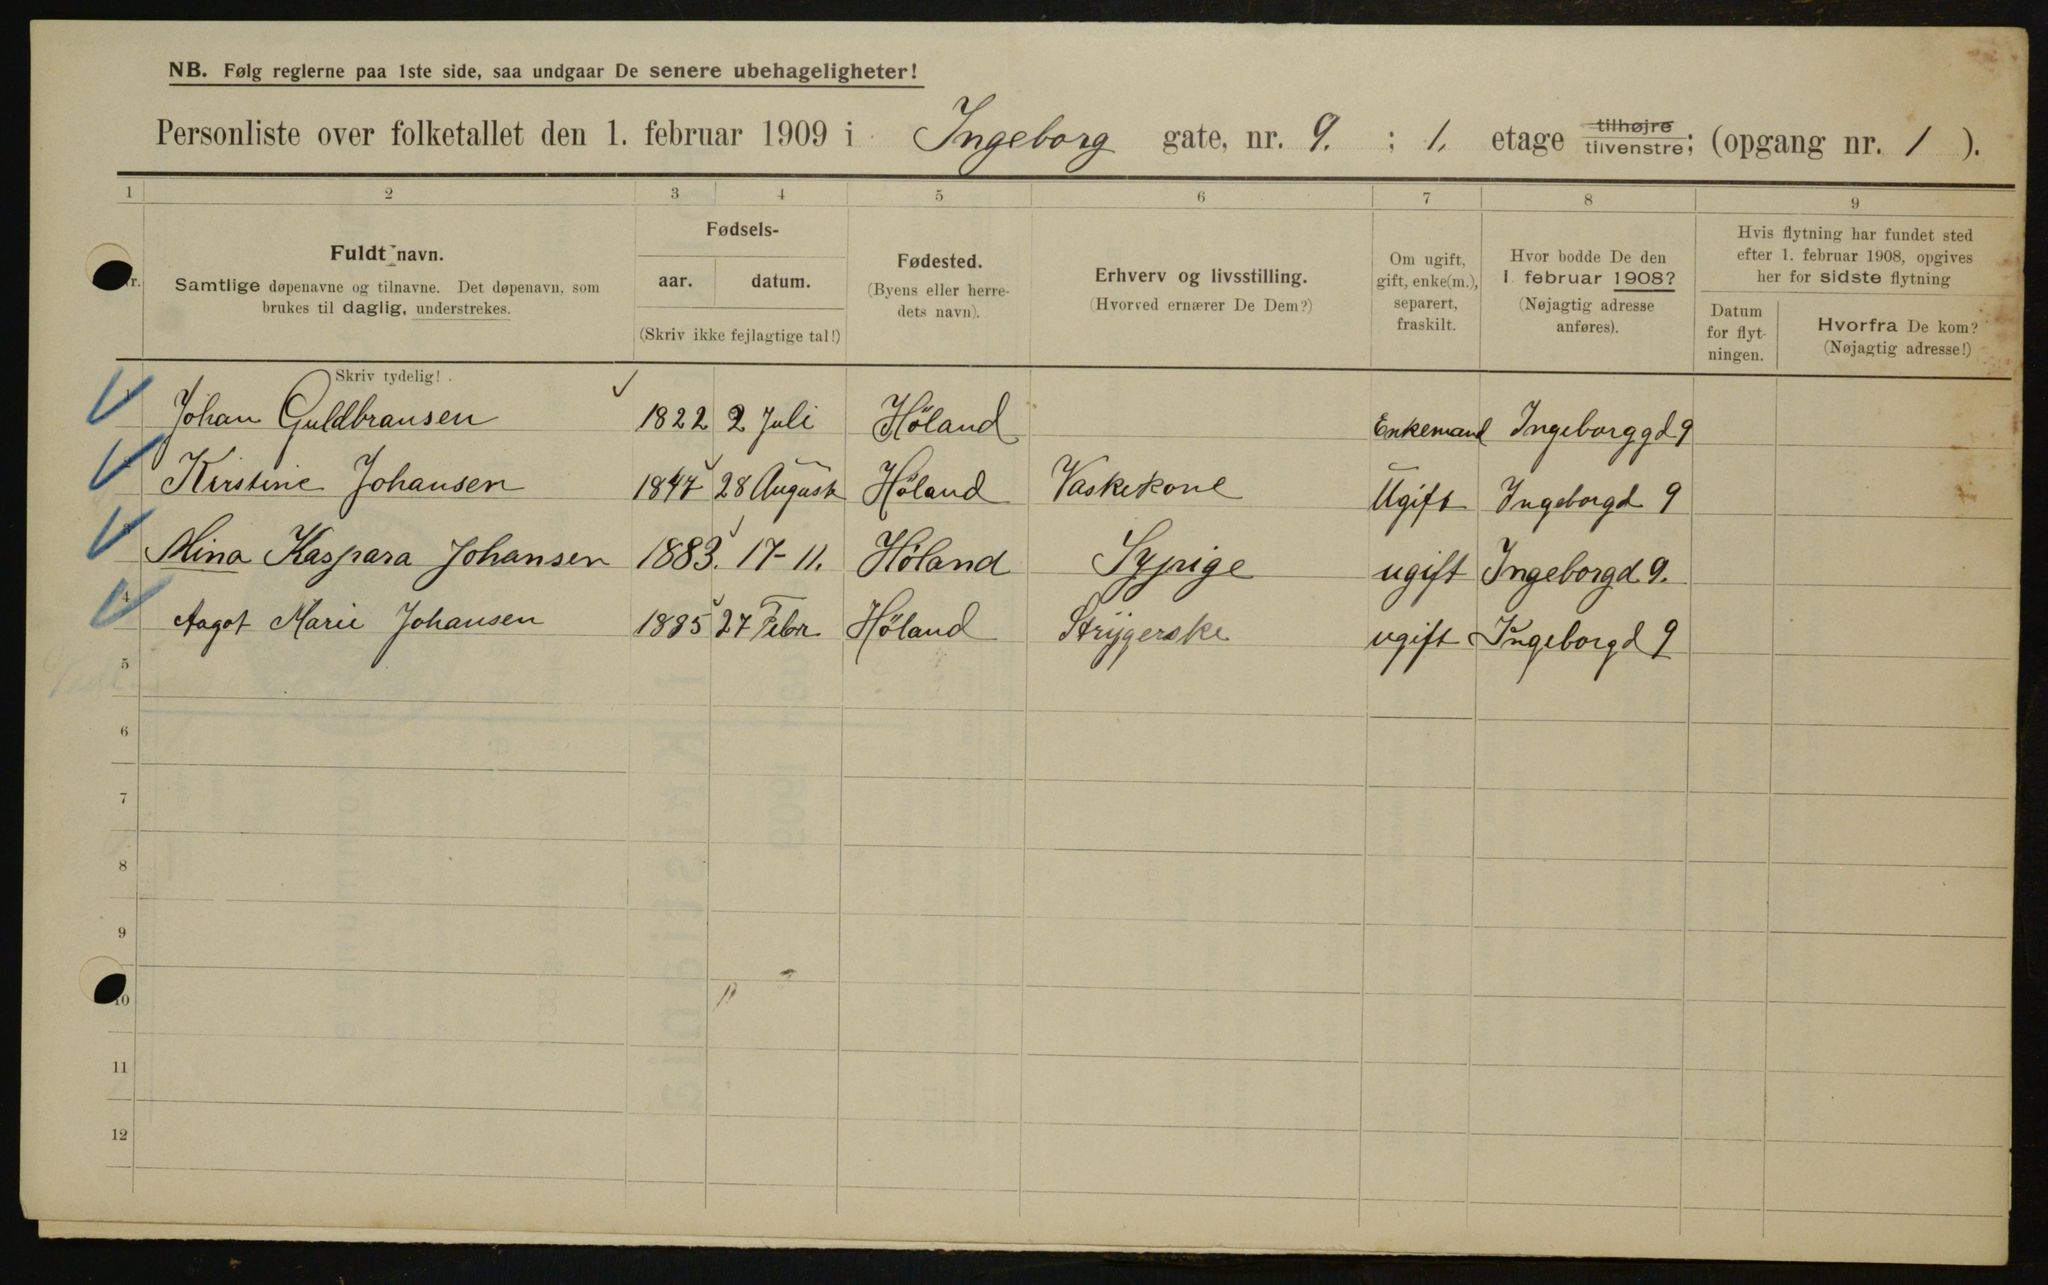 NB. Følg reglerne paa 1ste side, saa undgaar De senere ubehageligheter!
Personliste over folketallet den 1. februar 1909 i Ingeborg gate, nr. 9. ; 1. etage tilhøjre tilvenstre; (opgang nr. 1 ).
1 2 3 4 5 6 7 8 9
Fuldt navn.
Samtlige døpenavne og tilnavne. Det døpenavn, som
brukes til daglig, understrekes.
Skriv tydelig!
Fødsels-
aar. datum.
(Skriv ikke fejlagtige tal!)
Fødested.
(Byens eller herre-
dets navn).
Erhverv og livsstilling.
(Hvorved ernærer De Dem?)
Om ugift,
gift, enke(m.),
separert,
fraskilt.
Hvor bodde De den
1. februar 1908?
(Nøjagtig adresse
anføres).
Hvis flytning har fundet sted
efter 1. februar 1908, opgives
her for sidste flytning
Datum
for flyt-
ningen.
Hvorfra De kom?
(Nøjagtig adresse!)
Johan Guldbransen 1822 2 Juli Höland Enkemand Ingeborggd 9
Kirstine Johansen 1847 28 August Höland Vaskekone Ugift Ingeborgd 9
Mina Kaspara Johansen 1883. 17-11. Höland Sypige ugift Ingeborgd 9.
4 Aagot Marie Johansen 1885 27 Febr Höland Strygerske ugift Ingeborgd 9
5
6
7
8
9
10
11
12